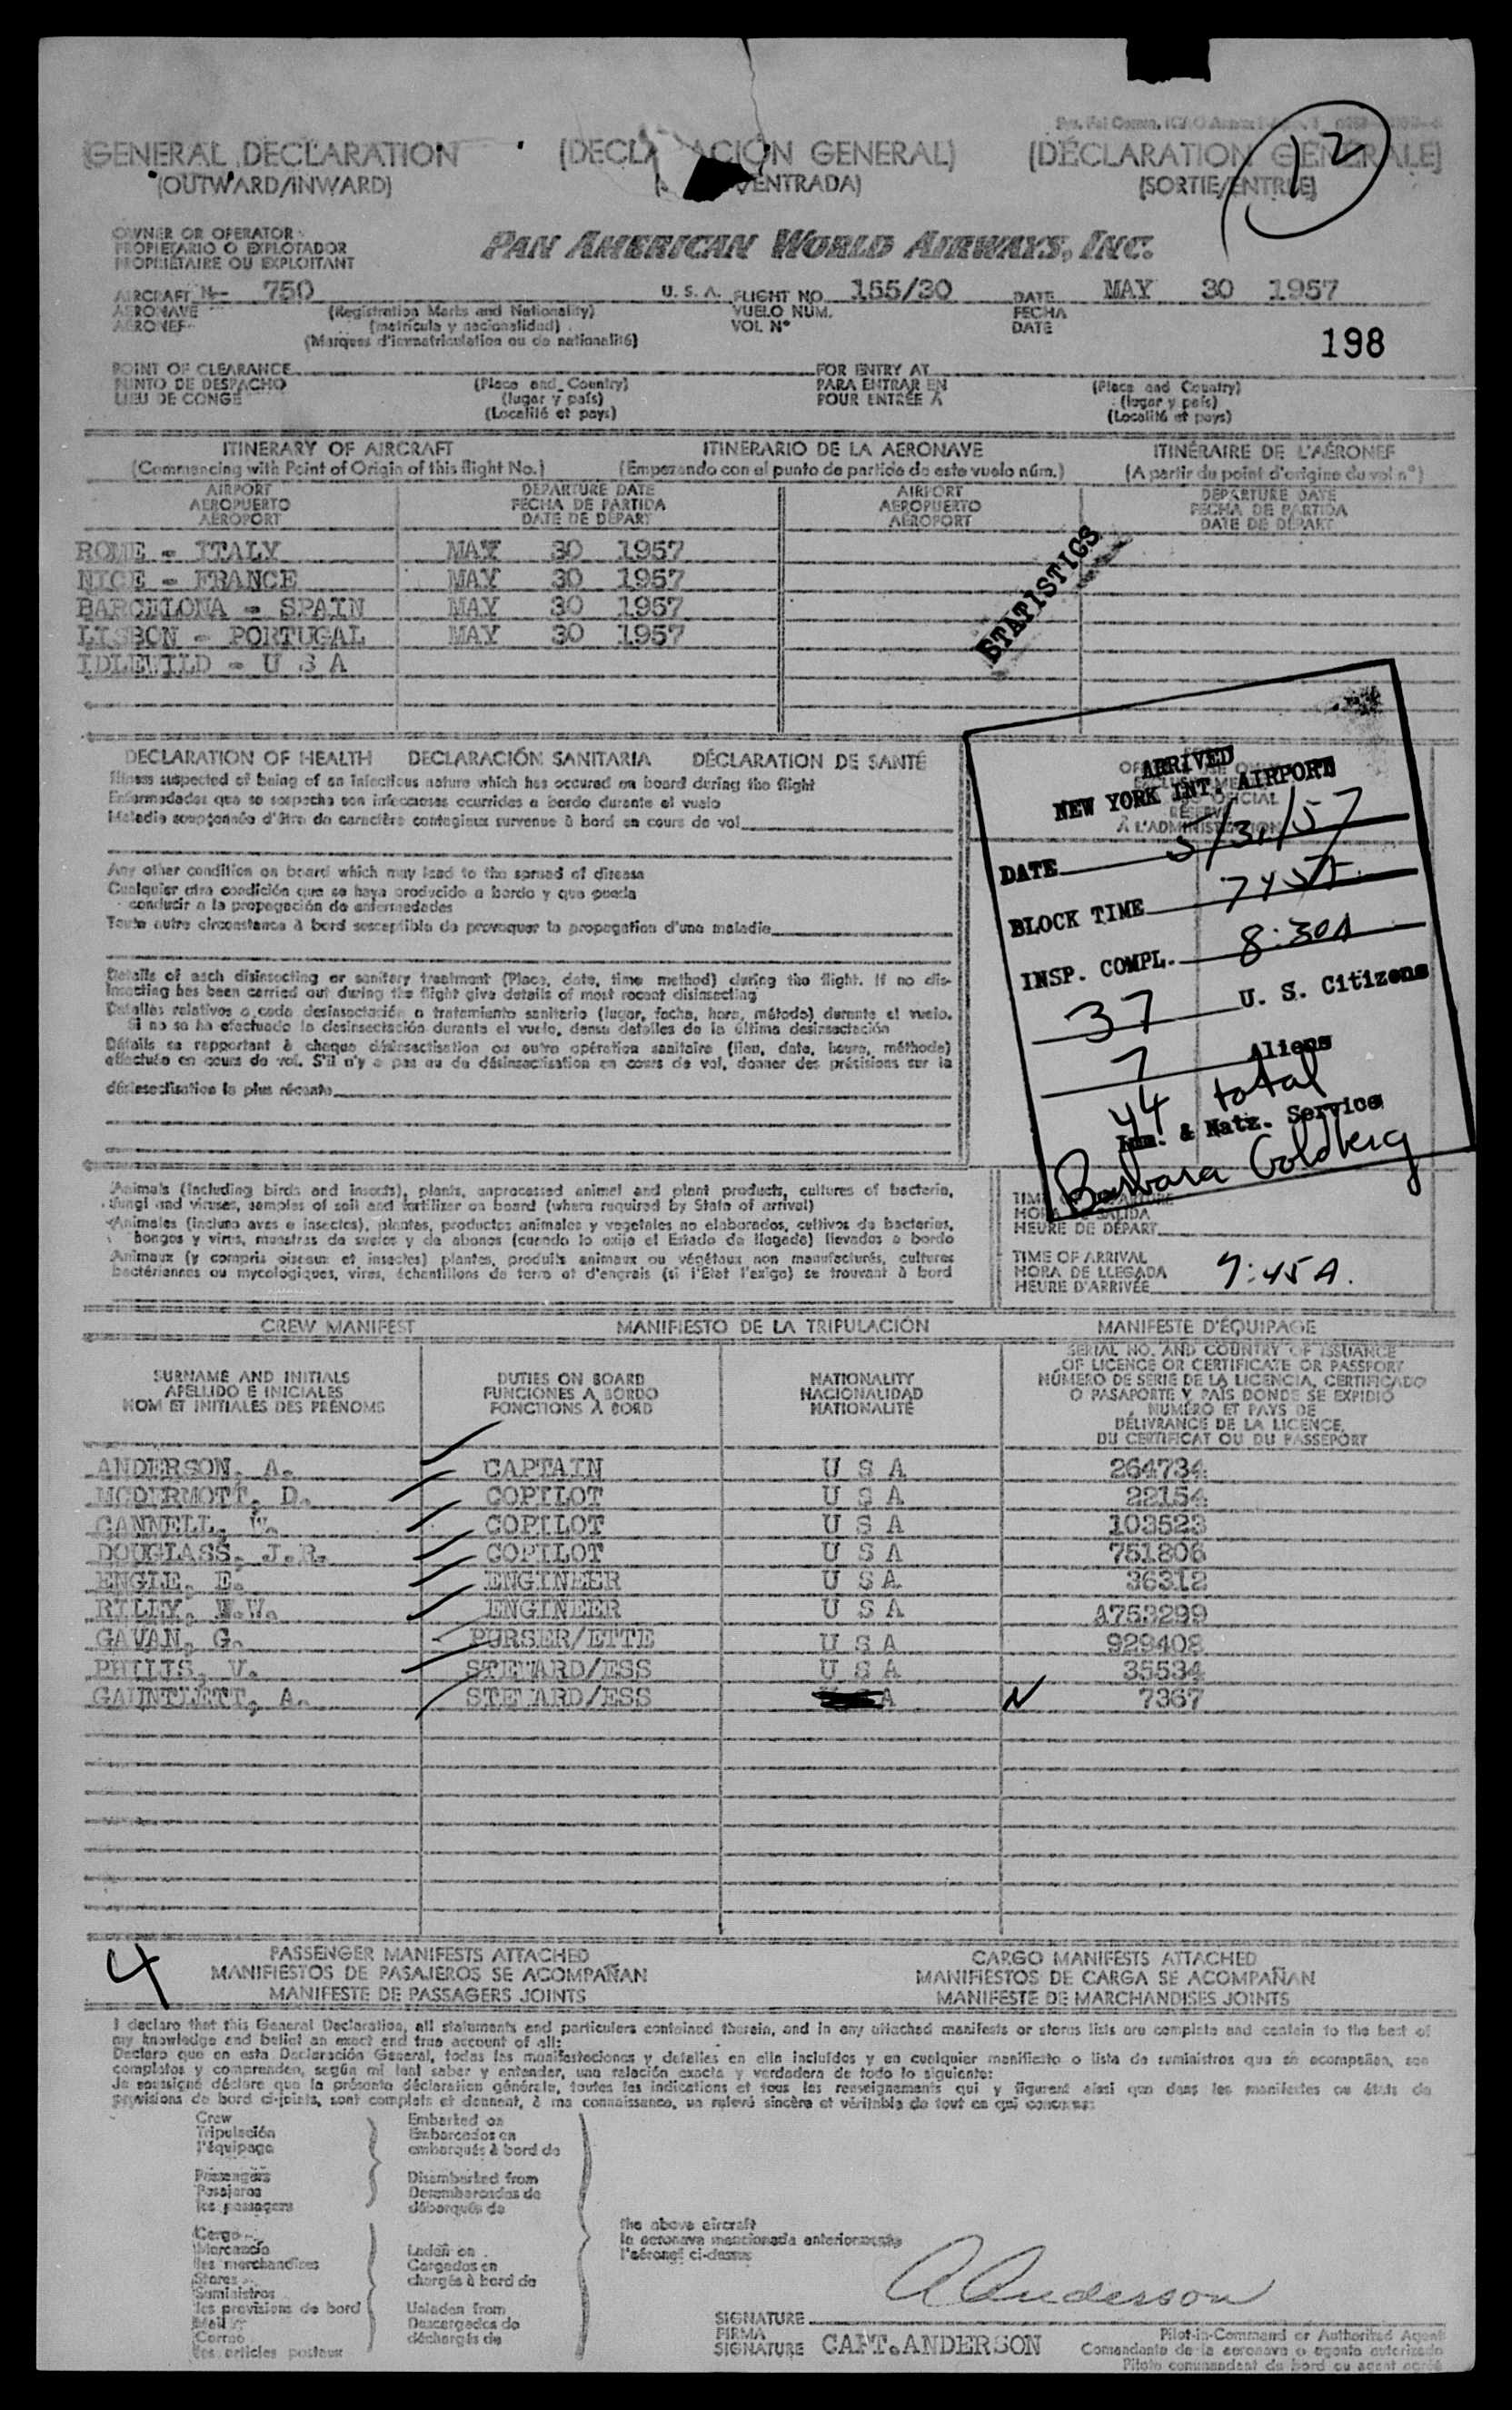 12
(GENERAL DECLARATION (DECLA ACIÓN GENERAL) (DÉCLARATION GÉNÉRALE)
(OUTWARD/INWARD) ENTRADA) (SORTIE/ENTRÉE)
OWNER OR OPERATOR
PROPIETARIO O EXPLOTADOR
PROPRIÉTAIRE OU EXPLOITANT
PAN AMERICAN WORLD AIRWAYS, INC.
AIRCRAFT N- 750 U. S. A. FLIGHT NO. 155/30 DATE MAY 30 1957
AERONAVE (Registration Marks and Nationality) VUELO NUM. FECHA
AERONEF (matrícula y nacionalidad) VOL N° DATE
(Marques d'immatriculation ou de nationalité)
198
POINT OF CLEARANCE FOR ENTRY AT
PUNTO DE DESPACHO (Place and Country) PARA ENTRAR EN (Place and Country)
LIEU DE CONGÉ (lugar y país) POUR ENTRÉE À (lugar y país)
(Localité et pays) (Localité et pays)
ITINERARY OF AIRCRAFT ITINERARIO DE LA AERONAVE ITINÉRAIRE DE L'AÉRONEF
(Commencing with Point of Origin of this flight No.) (Empezando con el punto de partida de este vuelo núm.) (A partir du point d'origine du vol n°)
AIRPORT DEPARTURE DATE AIRPORT DEPARTURE DATE
AEROPUERTO FECHA DE PARTIDA AEROPUERTO FECHA DE PARTIDA
AÉROPORT DATE DE DÉPART AÉROPORT DATE DE DÉPART
ROME - ITALY MAY 30 1957
NICE - FRANCE MAY 30 1957
BARCELONA - SPAIN MAY 30 1957
LISBON - PORTUGAL MAY 30 1957
IDLEWILD - U S A
STATISTICS
DECLARATION OF HEALTH DECLARACIÓN SANITARIA DÉCLARATION DE SANTÉ
Illness suspected of being of an infectious nature which has occured on board during the flight
Enfermedades que se sospecha son infecciosas ocurridas a bordo durante el vuelo
Maladie soupçonnée d'être de caractère contagieux survenue à bord en cours de vol
Any other condition on board which may lead to the spread of disease
Cualquier otra condición que se haya producido a bordo y que pueda
conducir a la propagación de enfermedades
Toute autre circonstance à bord susceptible de provoquer la propagation d'une maladie
Details of each disinsecting or sanitary treatment (Place, date, time method) during the flight. If no dis-
insecting has been carried out during the flight give details of most recent disinsecting
Detalles relativos a cada desinsectación o tratamiento sanitario (lugar, fecha, hora, método) durante el vuelo.
Si no se ha efectuado la desinsectación durante el vuelo, dense detalles de la última desinsectación
Détails se rapportant à chaque désinsectisation ou autre opération sanitaire (lieu, date, heure, méthode)
effectuée en cours de vol. S'il n'y a pas eu de désinsectisation en cours de vol, donner des précisions sur la
désinsectisation la plus récente
ARRIVED
NEW YORK INT. AIRPORT
À L'ADMINISTRATION
DATE 5/31/57
BLOCK TIME
INSP. COMPL. 8:30A
37 U. S. Citizens
7 Aliens
44 total
Imm. & Natz. Service
Barbara Goldberg
Animals (including birds and insects), plants, unprocessed animal and plant products, cultures of bacteria,
fungi and viruses, samples of soil and fertilizer on board (where required by State of arrival)
Animales (incluso aves e insectos), plantas, productos animales y vegetales no elaborados, cultivos de bacterias,
hongos y virus, muestras de suelos y de abonos (cuando lo exija el Estado de llegada) llevados a bordo
Animaux (y compris oiseaux et insectes) plantes, produits animaux ou végétaux non manufacturés, cultures
bactériennes ou mycologiques, virus, échantillons de terre et d'engrais (si l'Etat l'exige) se trouvant à bord
HEURE DE DÉPART
TIME OF ARRIVAL
HORA DE LLEGADA
HEURE D'ARRIVÉE
:45A.
CREW MANIFEST MANIFIESTO DE LA TRIPULACIÓN MANIFESTE D'ÉQUIPAGE
SURNAME AND INITIALS
APELLIDO E INICIALES
NOM ET INITIALES DES PRÉNOMS
DUTIES ON BOARD
FUNCIONES A BORDO
FONCTIONS À BORD
NATIONALITY
NACIONALIDAD
NATIONALITÉ
SERIAL NO. AND COUNTRY OF ISSUANCE
OF LICENCE OR CERTIFICATE OR PASSPORT
NÚMERO DE SERIE DE LA LICENCIA, CERTIFICADO
O PASAPORTE Y PAÍS DONDE SE EXPIDIÓ
NUMÉRO ET PAYS DE
DÉLIVRANCE DE LA LICENCE,
DU CERTIFICAT OU DU PASSEPORT
ANDERSON, A. CAPTAIN U S A 264734
MCDERMOTT, D. COPILOT U S A 22154
CANNELL, W. COPILOT U S A 103523
DOUGLASS, J.R. COPILOT U S A 751806
ENGLE, E. ENGINEER U S A 36312
RILEY, W. ENGINEER U S A A753299
GAVAN, G. PURSER/ETTE U S A 929408
PHILIS, V. STEWARD/ESS U S A 35534
GAUNTLETT, A. STEWARD/ESS A 7367
4
PASSENGER MANIFESTS ATTACHED CARGO MANIFESTS ATTACHED
MANIFIESTOS DE PASAJEROS SE ACOMPAÑAN MANIFIESTOS DE CARGA SE ACOMPAÑAN
MANIFESTE DE PASSAGERS JOINTS MANIFESTE DE MARCHANDISES JOINTS
I declare that this General Declaration, all statements and particulars contained therein, and in any attached manifests or stores lists are complete and contain to the best of
my knowledge and belief an exact and true account of all:
Declaro que en esta Declaración General, todas las manifestaciones y detalles en ella incluídos y en cualquier manifiesto o lista de suministros que se acompañen, son
completos y comprenden, según mi leal saber y entender, una relación exacta y verdadera de todo lo siguiente:
Je soussigné déclare que la présente déclaration générale, toutes les indications et tous les renseignements qui y figurent ainsi que dans les manifestes ou états de
provisions de bord ci-joints, sont complets et donnent, à ma connaissance, un relevé sincère et véritable de tout ce qui concerne:
Crew Embarked on
Tripulación Embarcados en
l'équipage embarqués à bord de
Passengers Disembarked from
Pasajeros Desembarcados de
les passagers débarqués de
the above aircraft
la aeronave mencionada anteriormente
l'aéronef ci-dessus
Cargo
Mercancía Laden on
les marchandises Cargados en
Stores chargés à bord de
Suministros
les provisions de bord Unladen from
Mail Descargados de
Correo déchargés de
les articles postaux
A Anderson
SIGNATURE
FIRMA
SIGNATURE CAPT.ANDERSON
Pilot-in-Command or Authorized Agent
Comandante de la aeronave o agente autorizado
Pilote commandant de bord ou agent agréé